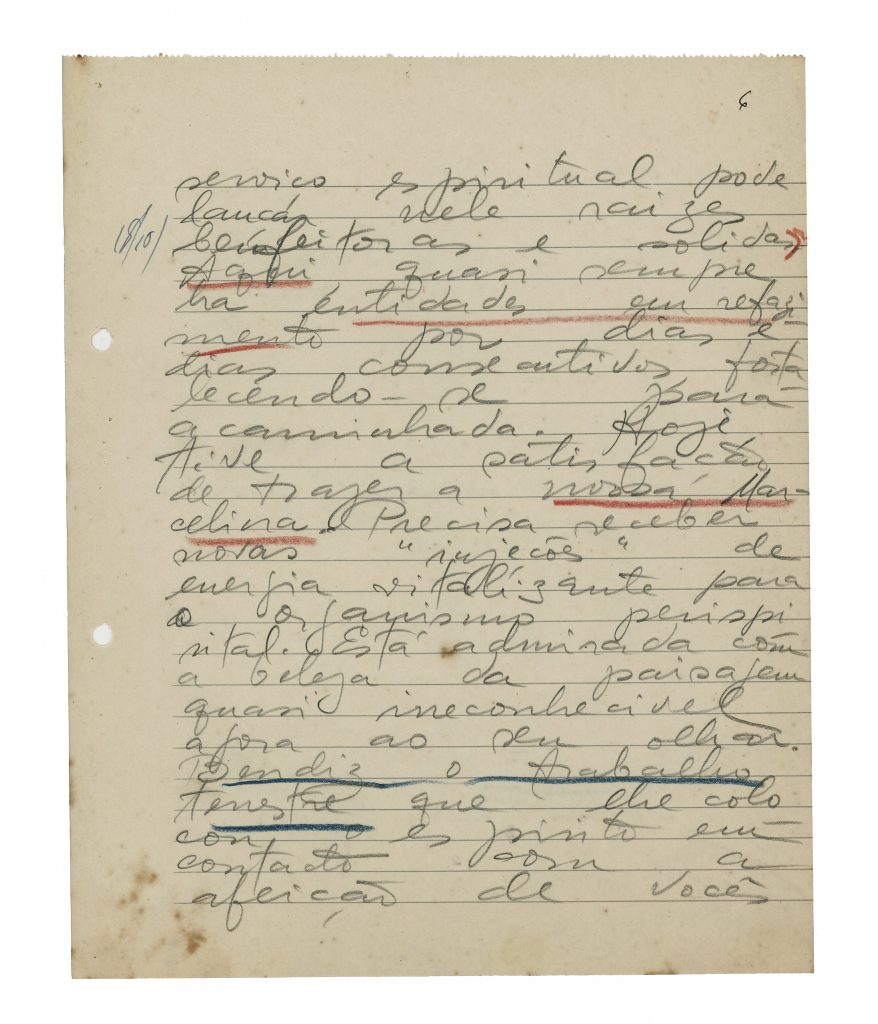 6
serviço espiritual pode
lançar nele raizes
18/10/
benfeitoras e solidas
Aqui quasi sempre
ha entidades em refazi
mento por dias e
dias consecutivos forta
lecendo-se para
a caminhada. Hoje
tive a satisfação
de trazer a nossa Mar-
celina. Precisa receber
novas "injeções" de
energia vitalizante para
o organismo perispi
rital. Está admirada com
a beleza da paisagem
quasi irreconhecivel
agora ao seu olhar.
Bendiz o trabalho
terrestre que lhe colo
cou o espirito em
contacto com a
afeição de vocês